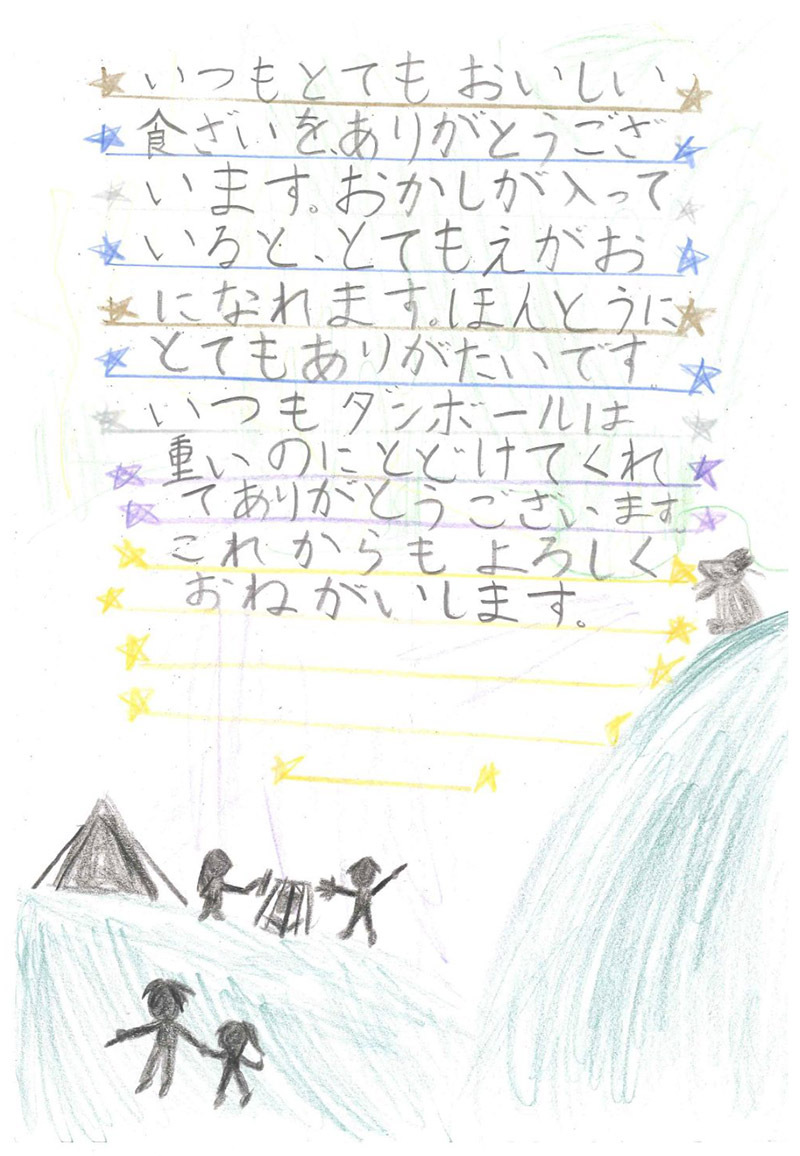 いつもとてもおいしい
食ざいを、ありがとうござ
います。おかしが入って
いると、とてもえがお
になれます。ほんとうに
とてもありがたいです。
いつもダンボールは
重いのにとどけてくれ
てありがとうございます。
これからもよろしく
おねがいします。